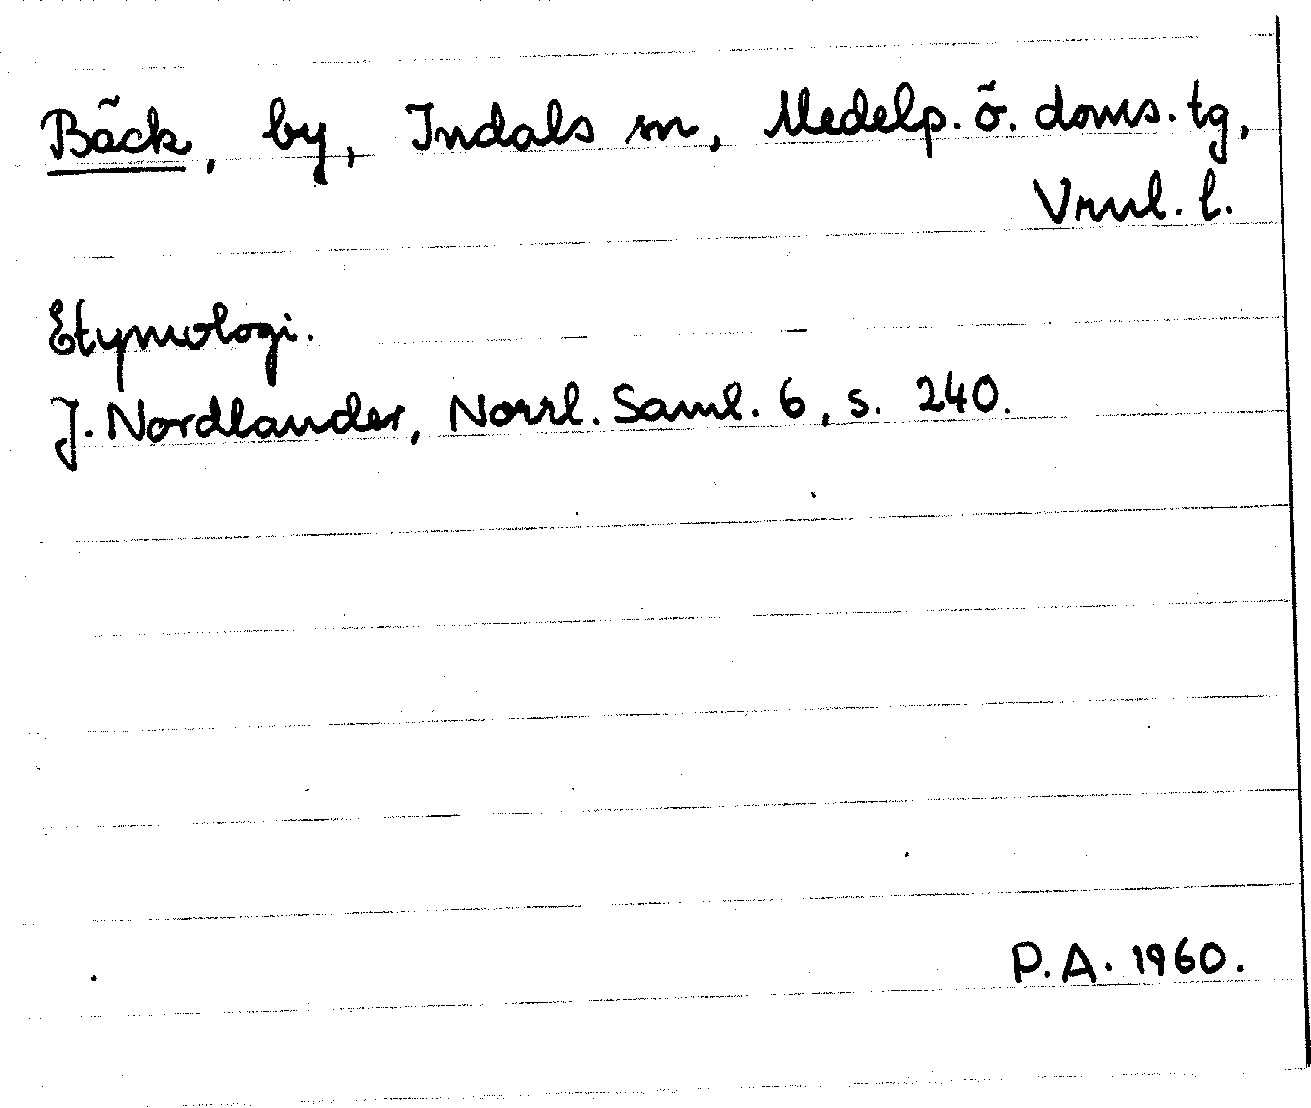 Bäck, by, Indals sn, Medelp. ö. doms. tg,
Vrnl. l.
Etymologi.
J. Nordlander, Norrl. Saml. 6, s. 240.
P.A. 1960.